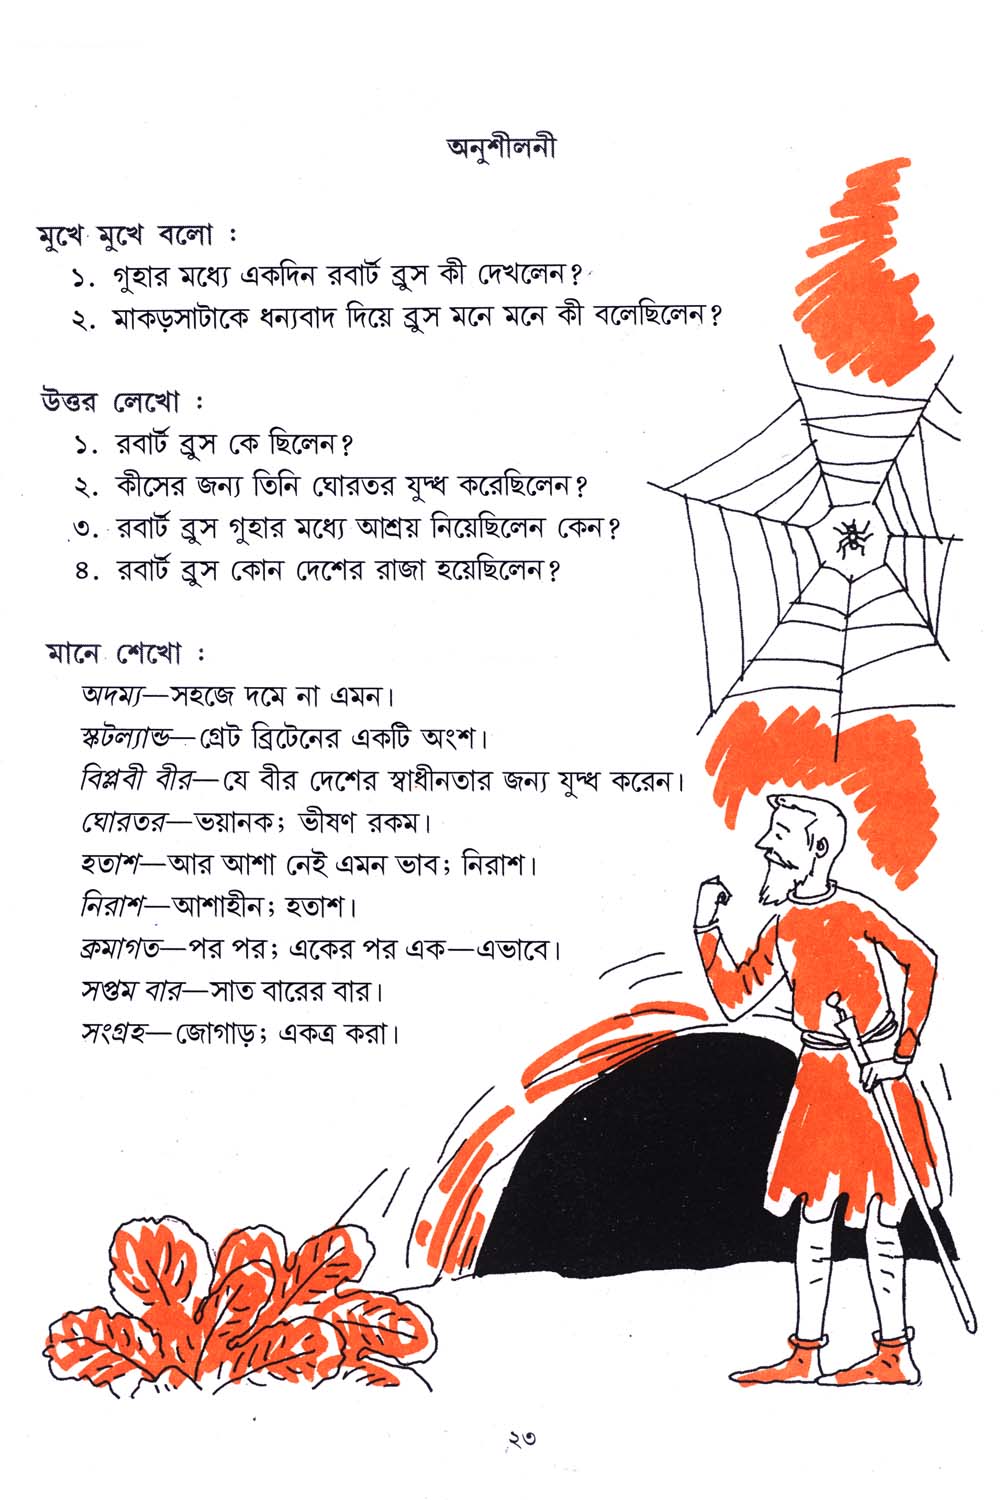 অনুশীলনী
মুখে মুখে বলো :
১. গুহার মধ্যে একদিন রবার্ট ব্রুস কী দেখলেন?
২. মাকড়সাটাকে ধন্যবাদ দিয়ে ব্রুস মনে মনে কী বলেছিলেন?
উত্তর লেখো :
১. রবার্ট ব্রুস কে ছিলেন?
২. কীসের জন্য তিনি ঘোরতর যুদ্ধ করেছিলেন?
৩. রবার্ট ব্রুস গুহার মধ্যে আশ্রয় নিয়েছিলেন কেন?
৪. রবার্ট ব্রুস কোন দেশের রাজা হয়েছিলেন?
মানে শেখো :
অদম্য—সহজে দমে না এমন।
স্কটল্যান্ড—গ্রেট ব্রিটেনের একটি অংশ।
বিপ্লবী বীর—যে বীর দেশের স্বাধীনতার জন্য যুদ্ধ করেন।
ঘোরতর—ভয়ানক; ভীষণ রকম।
হতাশ—আর আশা নেই এমন ভাব; নিরাশ।
নিরাশ—আশাহীন; হতাশ।
ক্রমাগত—পর পর; একের পর এক—এভাবে।
সপ্তম বার—সাত বারের বার।
সংগ্রহ—জোগাড়; একত্র করা।
২৩